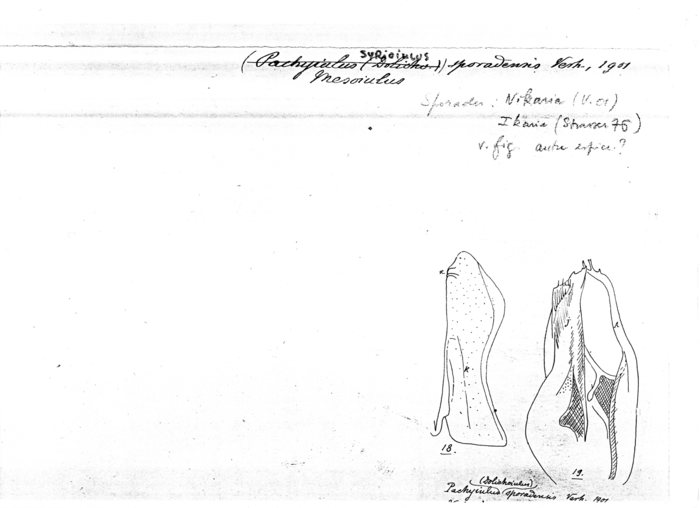 Syrioiulus
(Pachyiulus (Dolicho.)) sporadensis Verh., 1901
Mesoiulus
Sporades: Nikaria (V. 01)
Ikaria (Strasser 76)
v. fig. autre espèce?
k
18.
19.
(Dolichoiulus)
Pachyiulus sporadensis Verh. 1901